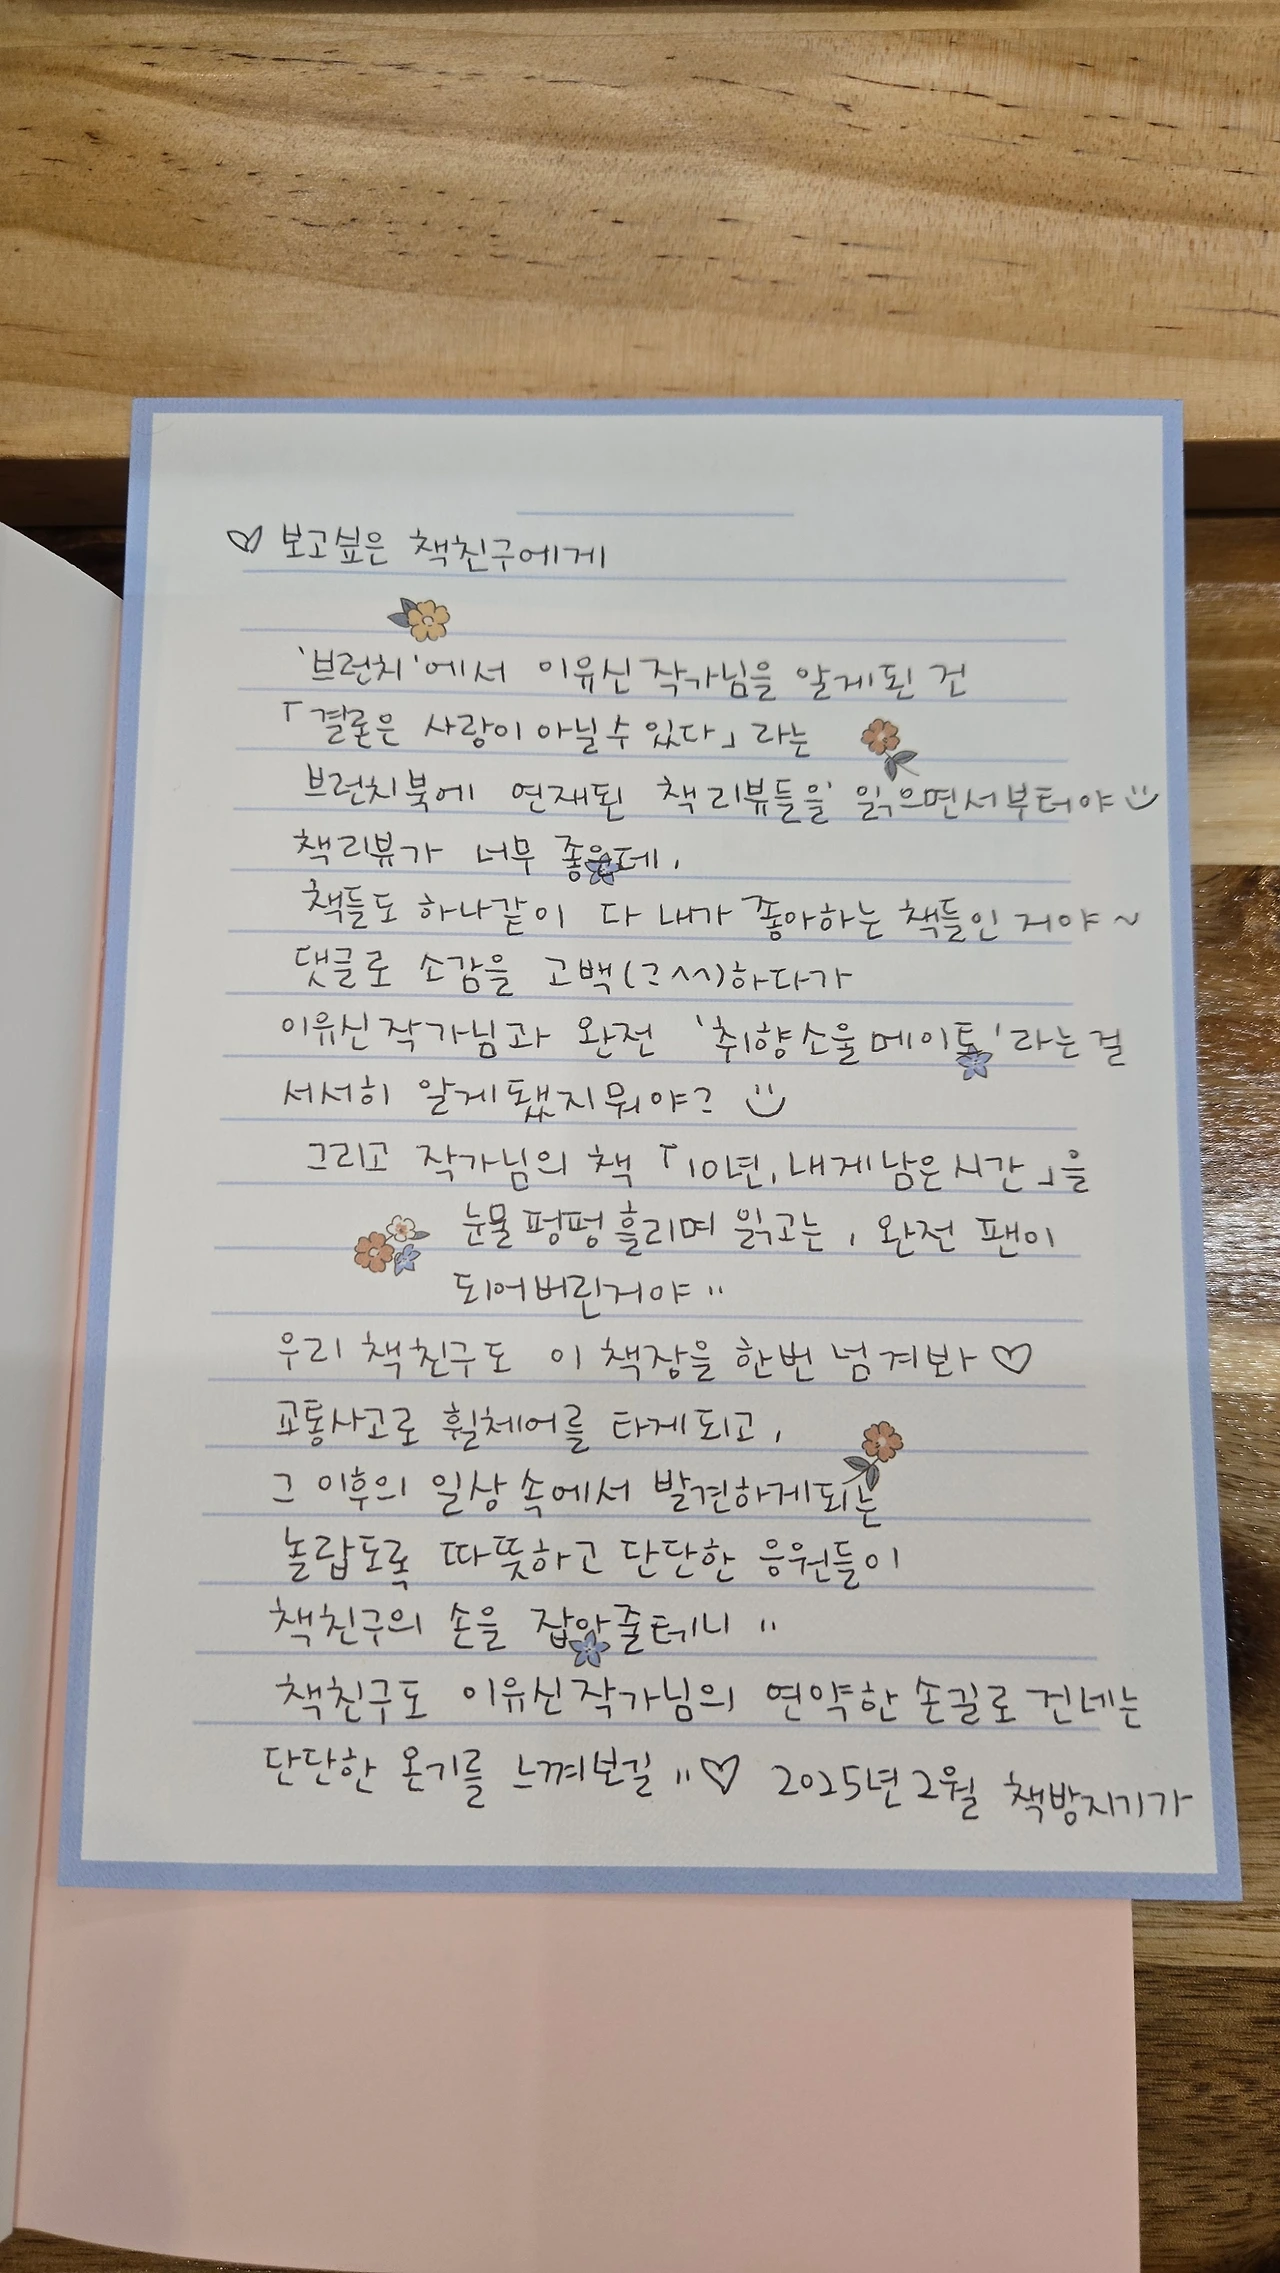 ♡ 보고싶은 책친구에게
'브런치'에서 이유신작가님을 알게된 건
「결론은 사랑이 아닐 수 있다」라는
브런치북에 연재된 책리뷰들을 읽으면서부터야
책리뷰가 너무 좋은데,
책들도 하나같이 다 내가 좋아하는 책들인 거야~
댓글로 소감을 고백(?^^)하다가
이유신작가님과 완전 '취향소울메이트'라는걸
서서히 알게됐지뭐야?
그리고 작가님의 책 「10년, 내게 남은 시간」을
눈물 펑펑 흘리며 읽고는, 완전 팬이
되어버린거야
우리 책친구도 이 책장을 한번 넘겨봐 ♡
교통사고로 휠체어를 타게되고,
그 이후의 일상 속에서 발견하게되는
놀랍도록 따뜻하고 단단한 응원들이
책친구의 손을 잡아줄테니
책친구도 이유신작가님의 연약한 손길로 건네는
단단한 온기를 느껴보길 ♡ 2025년 2월 책방지기가